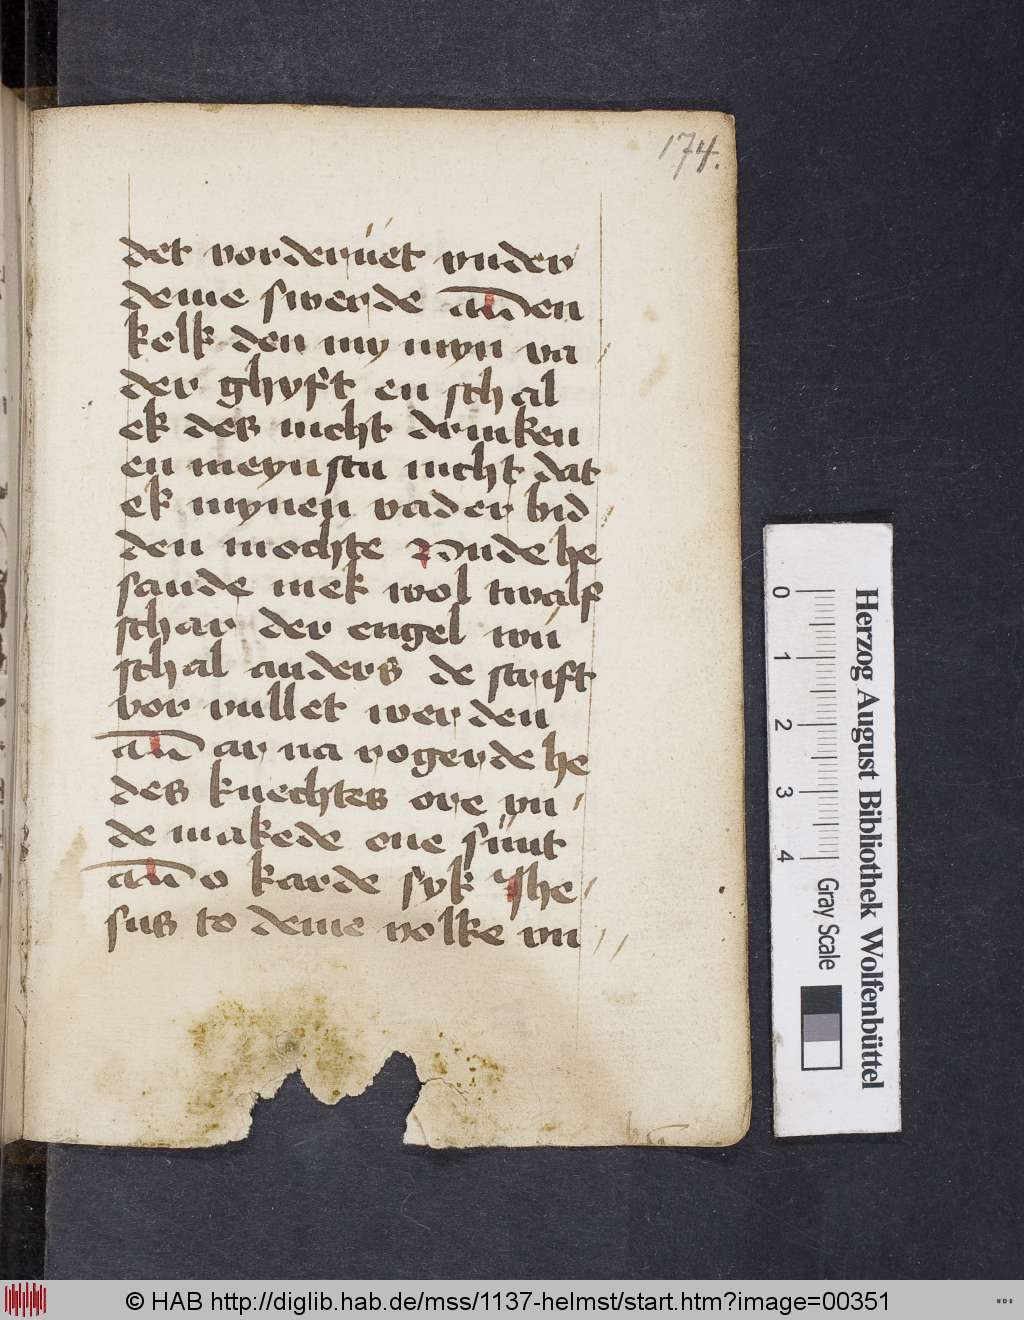 174.
det vorderuet vnder
deme swerde au̅ den
kelk den my myn va
der ghyft en schal
ek des nicht drinken
en meynstu nicht dat
ek mynen vader bid
den mochte Vnde he
sande mek wol twalf
schar der engel wu
schal anders de scrift
vor vullet werden
au̅ ar na rogerde he
des knechtes ore vn
de makede one sunt
au̅ o karde syk Jhe
sus to deme volke vn
0 1 2 3 4
Gray Scale
Herzog August Bibliothek Wolfenbüttel
© HAB http://diglib.hab.de/mss/1137-helmst/start.htm?image=00351